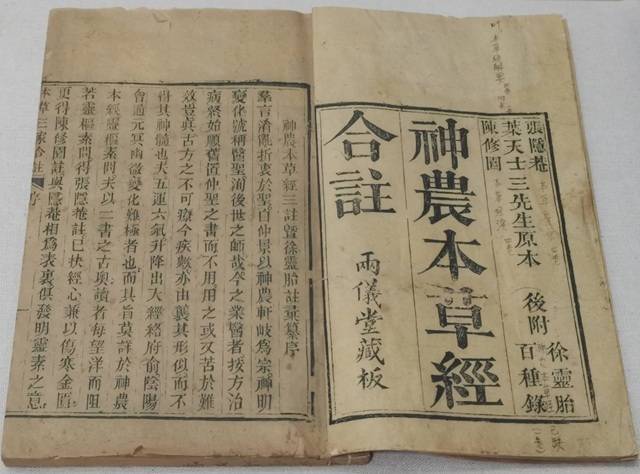 徐靈胎
百種錄
後附
張隱菴
葉天士三先生原本
陳修園
神農本草經
合註
兩儀堂藏板
神農本草經三註暨徐靈胎註彙纂序
羣言淆亂折衷於聖自仲景以神農軒岐爲宗神明
變化號稱醫聖洵後世之師哉今之業醫者按方治
病 始願舊置仲聖之書而不用用之或又苦於難
效豈眞古方之不可療今疾歟亦由襲其形似而不
得其神髓也夫五運六氣升降出入經絡府俞陰陽
會通元冥幽微變化難極者也而其旨莫詳於神農
本經靈樞素問夫以二書之古奧讀者每望洋而阻
若靈樞素問得張隱菴註已抉經心兼以傷寒金匱
更得陳修園註與隱菴相爲表裏俱發明靈素之意
本草三家合註 序